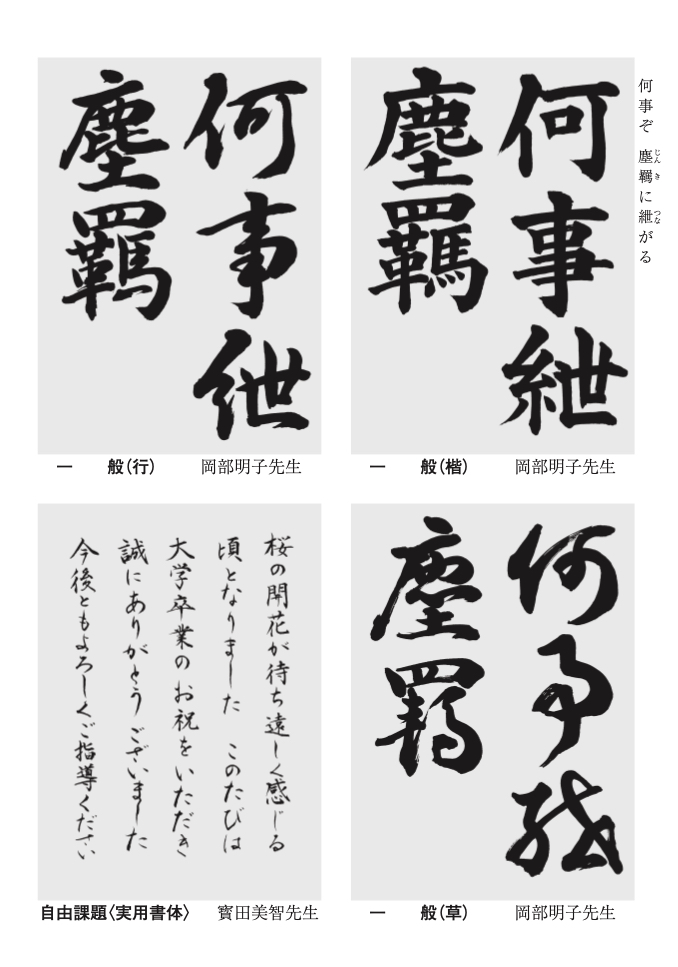 何事ぞ 塵羈に紲がる
じん き つな
何事紲
塵羈
一 般（楷） 岡部明子先生
何事紲
塵羈
一 般（行） 岡部明子先生
何事紲
塵羈
一 般（草） 岡部明子先生
桜の開花が待ち遠しく感じる
頃となりました このたびは
大学卒業のお祝をいただき
誠にありがとうございました
今後ともよろしくご指導ください
自由課題〈実用書体〉 寳田美智先生